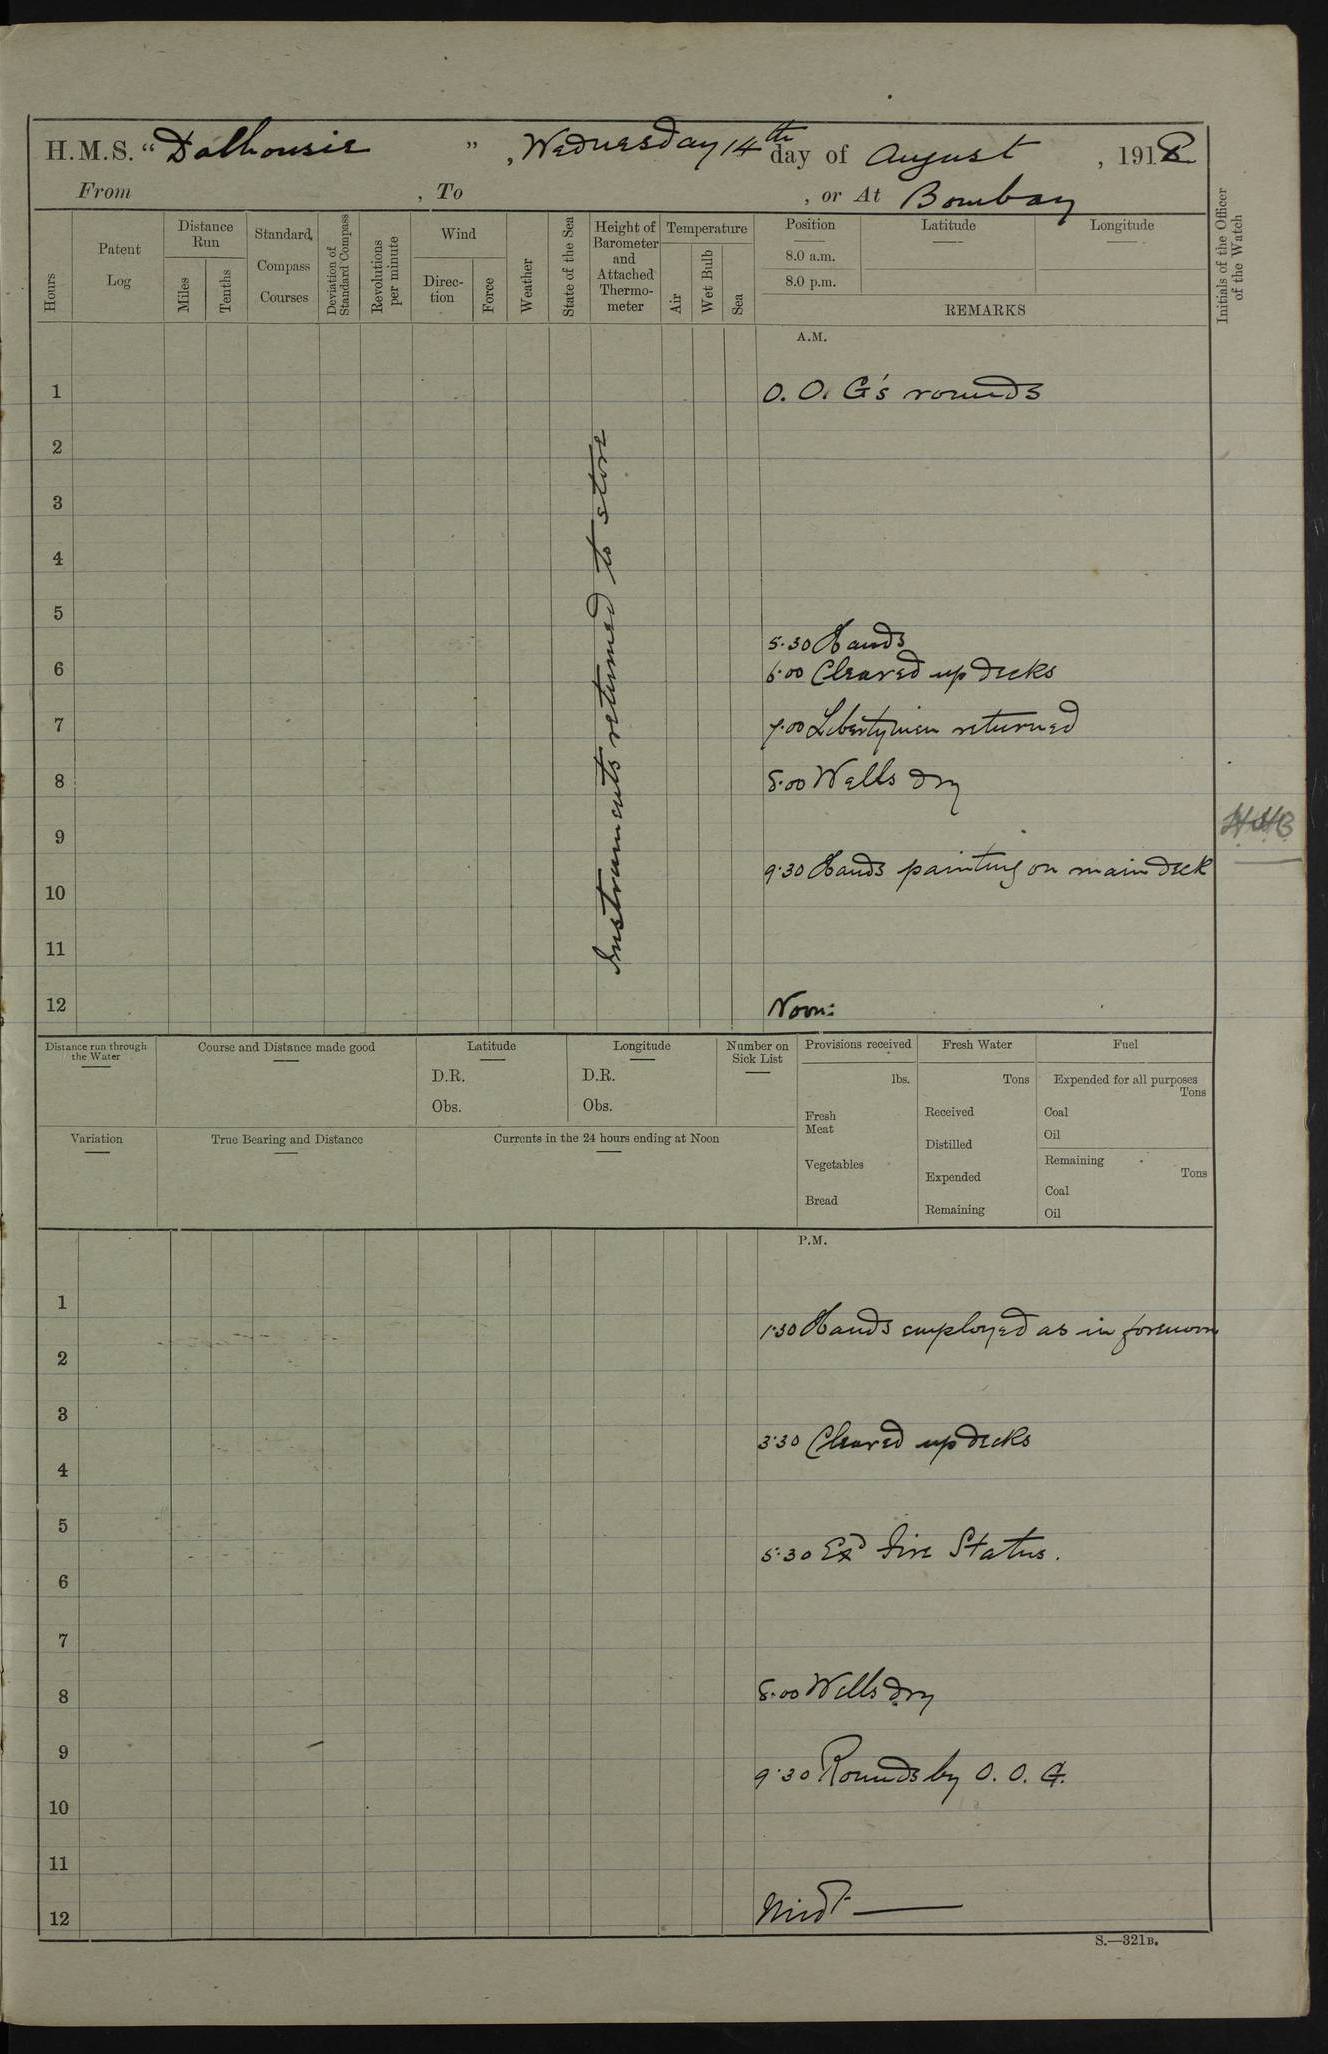 H.M.S. “Dalhousie ”, Wednesday 14th day of August, 1918
From , To , or At Bombay
Hours
Patent Log
Distance Run
Miles
Tenths
Standard Compass Courses
Deviation of Standard Compass
Revolutions per minute
Wind
Direction
Force
Weather
State of the Sea
Height of Barometer and Attached Thermometer
Temperature
Air
Wet Bulb
Sea
Position
8.0 a.m.
8.0 p.m.
Latitude
Longitude
REMARKS
Initials of the Officer of the Watch
A.M.
1 O. O. G's rounds
2
3
4
5
5.30 Hands
6 6.00 Cleared up decks
7 7.00 Libertymen returned
8 8.00 Wells dry
9
9.30 Hands painting on main deck
10
11
12 Noon:
Instruments returned to store
Distance run through the Water
Course and Distance made good
Latitude
D.R.
Obs.
Longitude
D.R.
Obs.
Number on Sick List
Provisions received
lbs.
Fresh Meat
Vegetables
Bread
Fresh Water
Tons
Received
Distilled
Expended
Remaining
Fuel
Expended for all purposes
Tons
Coal
Oil
Remaining
Tons
Coal
Oil
Variation
True Bearing and Distance
Currents in the 24 hours ending at Noon
P.M.
1
1.30 Hands employed as in forenoon
2
3
3.30 Cleared up decks
4
5
5.30 Exd Fire Status.
6
7
8 8.00 Wells dry
9
9.30 Rounds by O. O. G.
10
11
12 Midt
S.—321B.